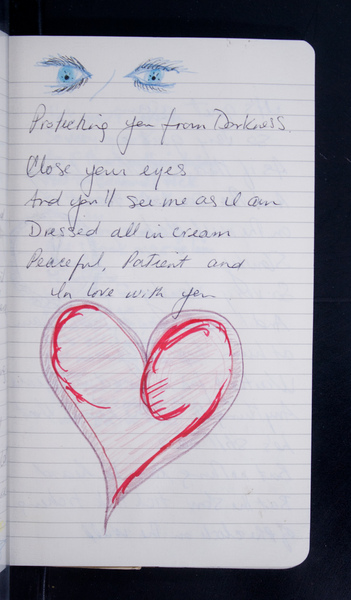 Protecting you from Darkness.
Close your eyes
And you'll see me as I am
Dressed all in cream
Peaceful, Patient and
In love with you